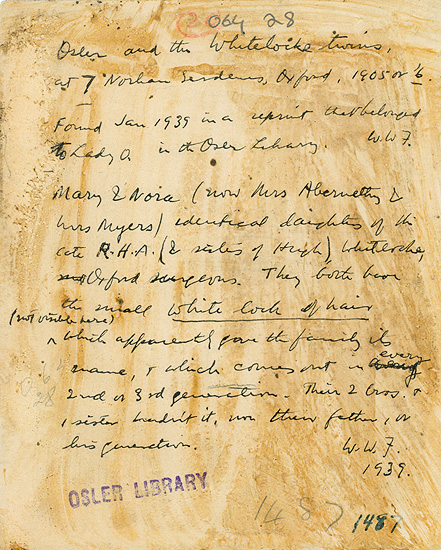 064 28
Osler and the Whitelocke twins,
at 7 Norham Gardens, Oxford, 1905 or '6.
Found Jan 1939 in a reprint that belonged
to Lady O. in the Osler Library. W.W.F.
Mary & Nora (now Mrs Abernethy &
Mrs Myers) identical daughters of the
late R.H.A. (& sisters of Hugh) Whitelocke,
Oxford surgeons. They both bear
the small white lock of hair
(not visible here)
^ which apparently gave the family its
name, & which comes out in every
2nd or 3rd generation. Their 2 bros. &
1 sister hadn't it, nor their father, or
his generation. W.W.F.
1939.
OSLER LIBRARY
1487 1487